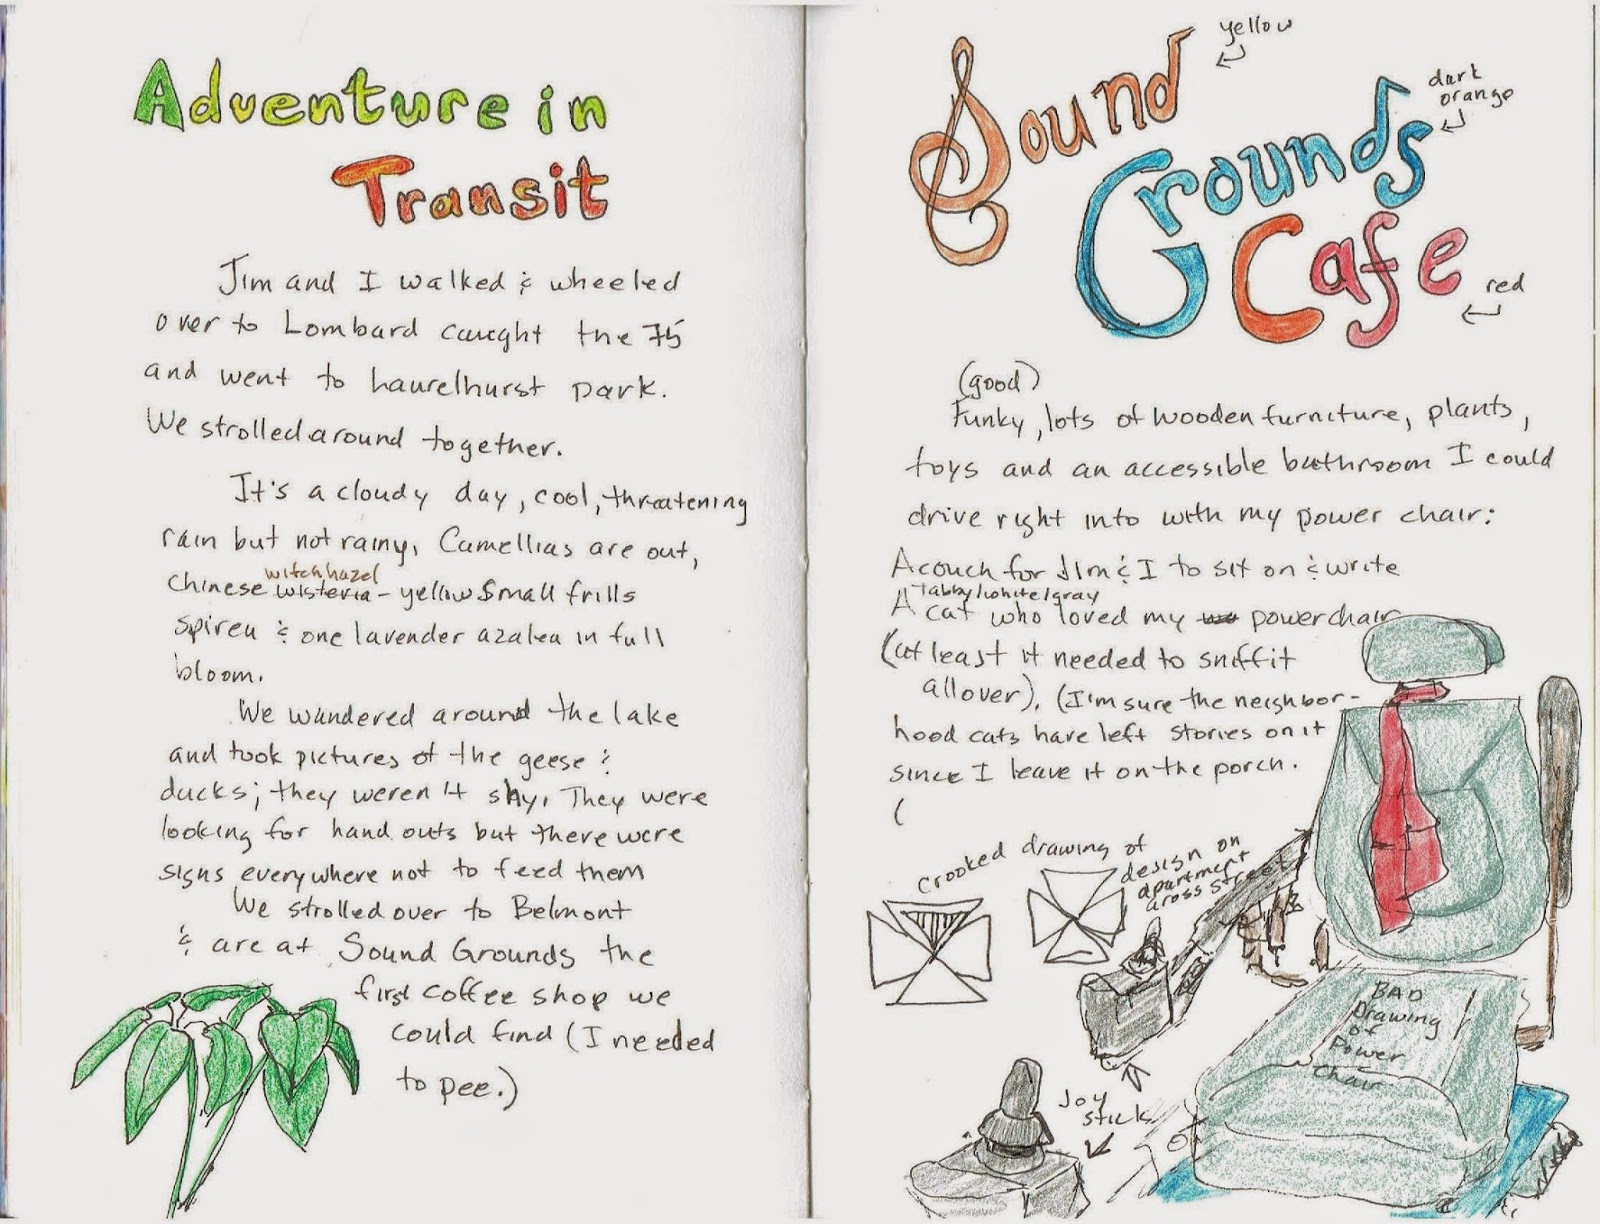 Adventure in
Transit
Jim and I walked & wheeled
over to Lombard caught the 75
and went to Laurelhurst park.
We strolled around together.
It's a cloudy day, cool, threatening
rain but not rainy. Camellias are out,
witchhazel
Chinese wisteria - yellow small frills
spirea & one lavender azalea in full
bloom.
We wandered around the lake
and took pictures of the geese &
ducks; they weren't shy. They were
looking for hand outs but there were
signs everywhere not to feed them
We strolled over to Belmont
& are at Sound Grounds the
first coffee shop we
could find (I needed
to pee.)
Sound
yellow
Grounds
dark
orange
Cafe
red
(good)
Funky, lots of wooden furniture, plants,
toys and an accessible bathroom I could
drive right into with my power chair:
A couch for Jim & I to sit on & write
Tabby/white/gray
A cat who loved my powerchair
(at least it needed to sniff it
all over). (I'm sure the neighbor-
hood cats have left stories on it
since I leave it on the porch.
(
crooked drawing of
design on
apartment
aross street
BAD
Drawing
of
Power
Chair
Joy
stick